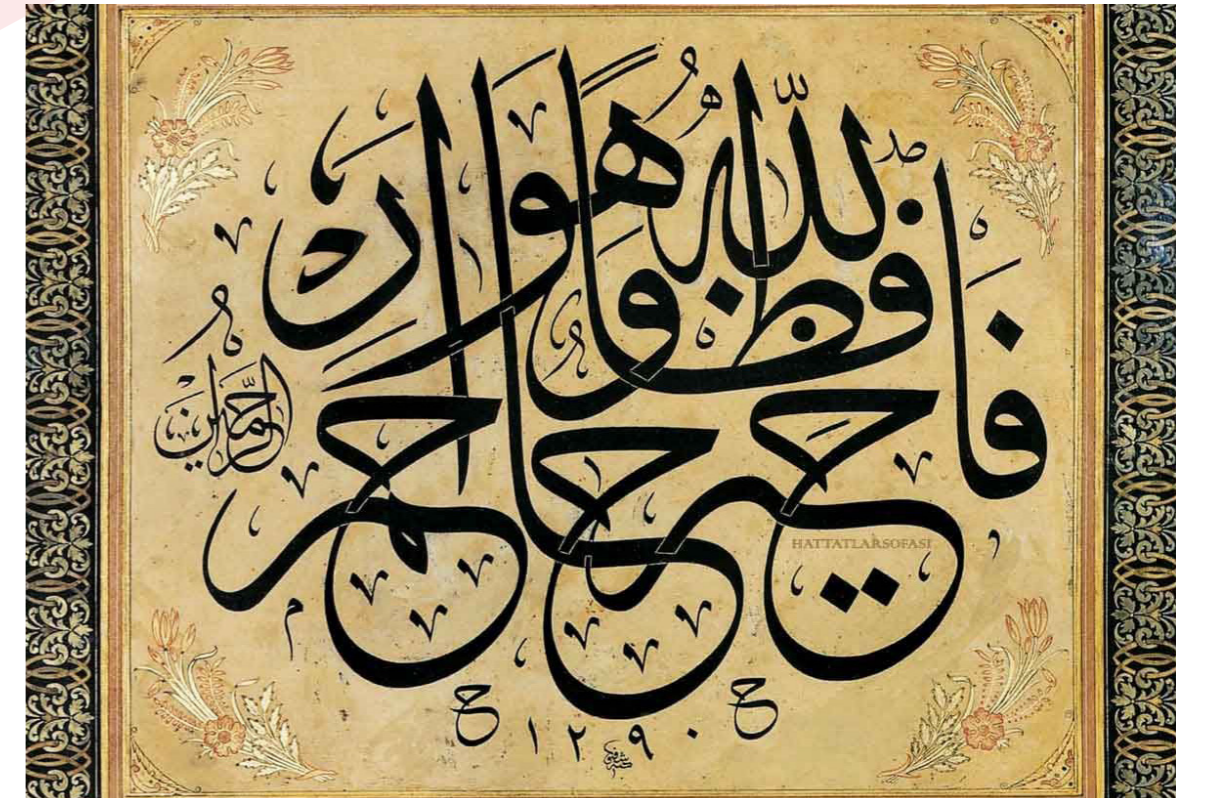 فالله خير حافظا وهو ارحم
الرحمين
HATTATLARSOFASI
١٢٩٠